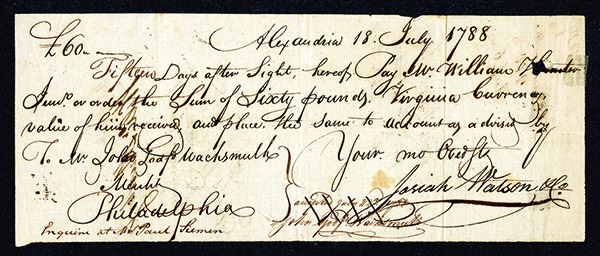 £60
Alexandria 18 July 1788
Fifteen Days after Sight, hereof Pay Mr. William Hunter
Junr. or order the Sum of Sixty pounds, Virginia Currency,
value of him received, and place the same to account as advised by
To Mr. John Wachsmuth
Your mo Obedt
Mercht
Josiah Watson & Co
Philadelphia
accepted July
John Wachsmuth
Enquire at Mr Paul Siemen